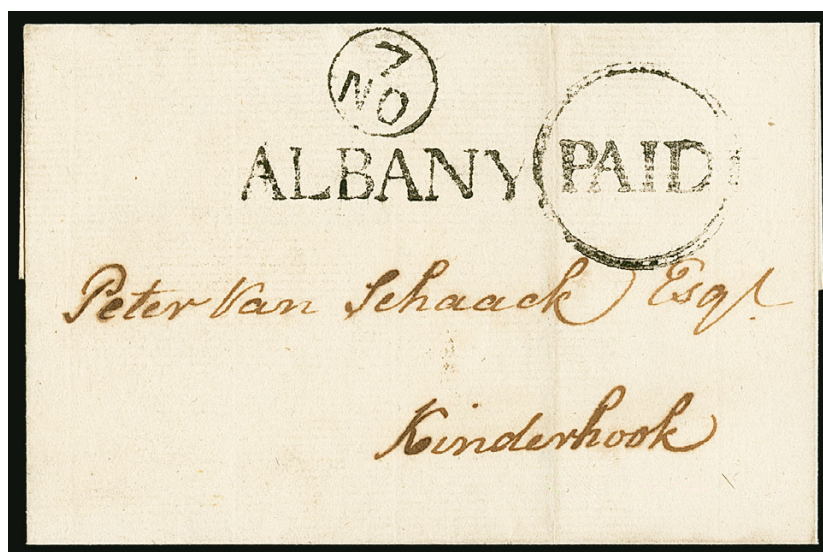 7
NO
ALBANY PAID
Peter Van Schaack Esqr.
Kinderhook